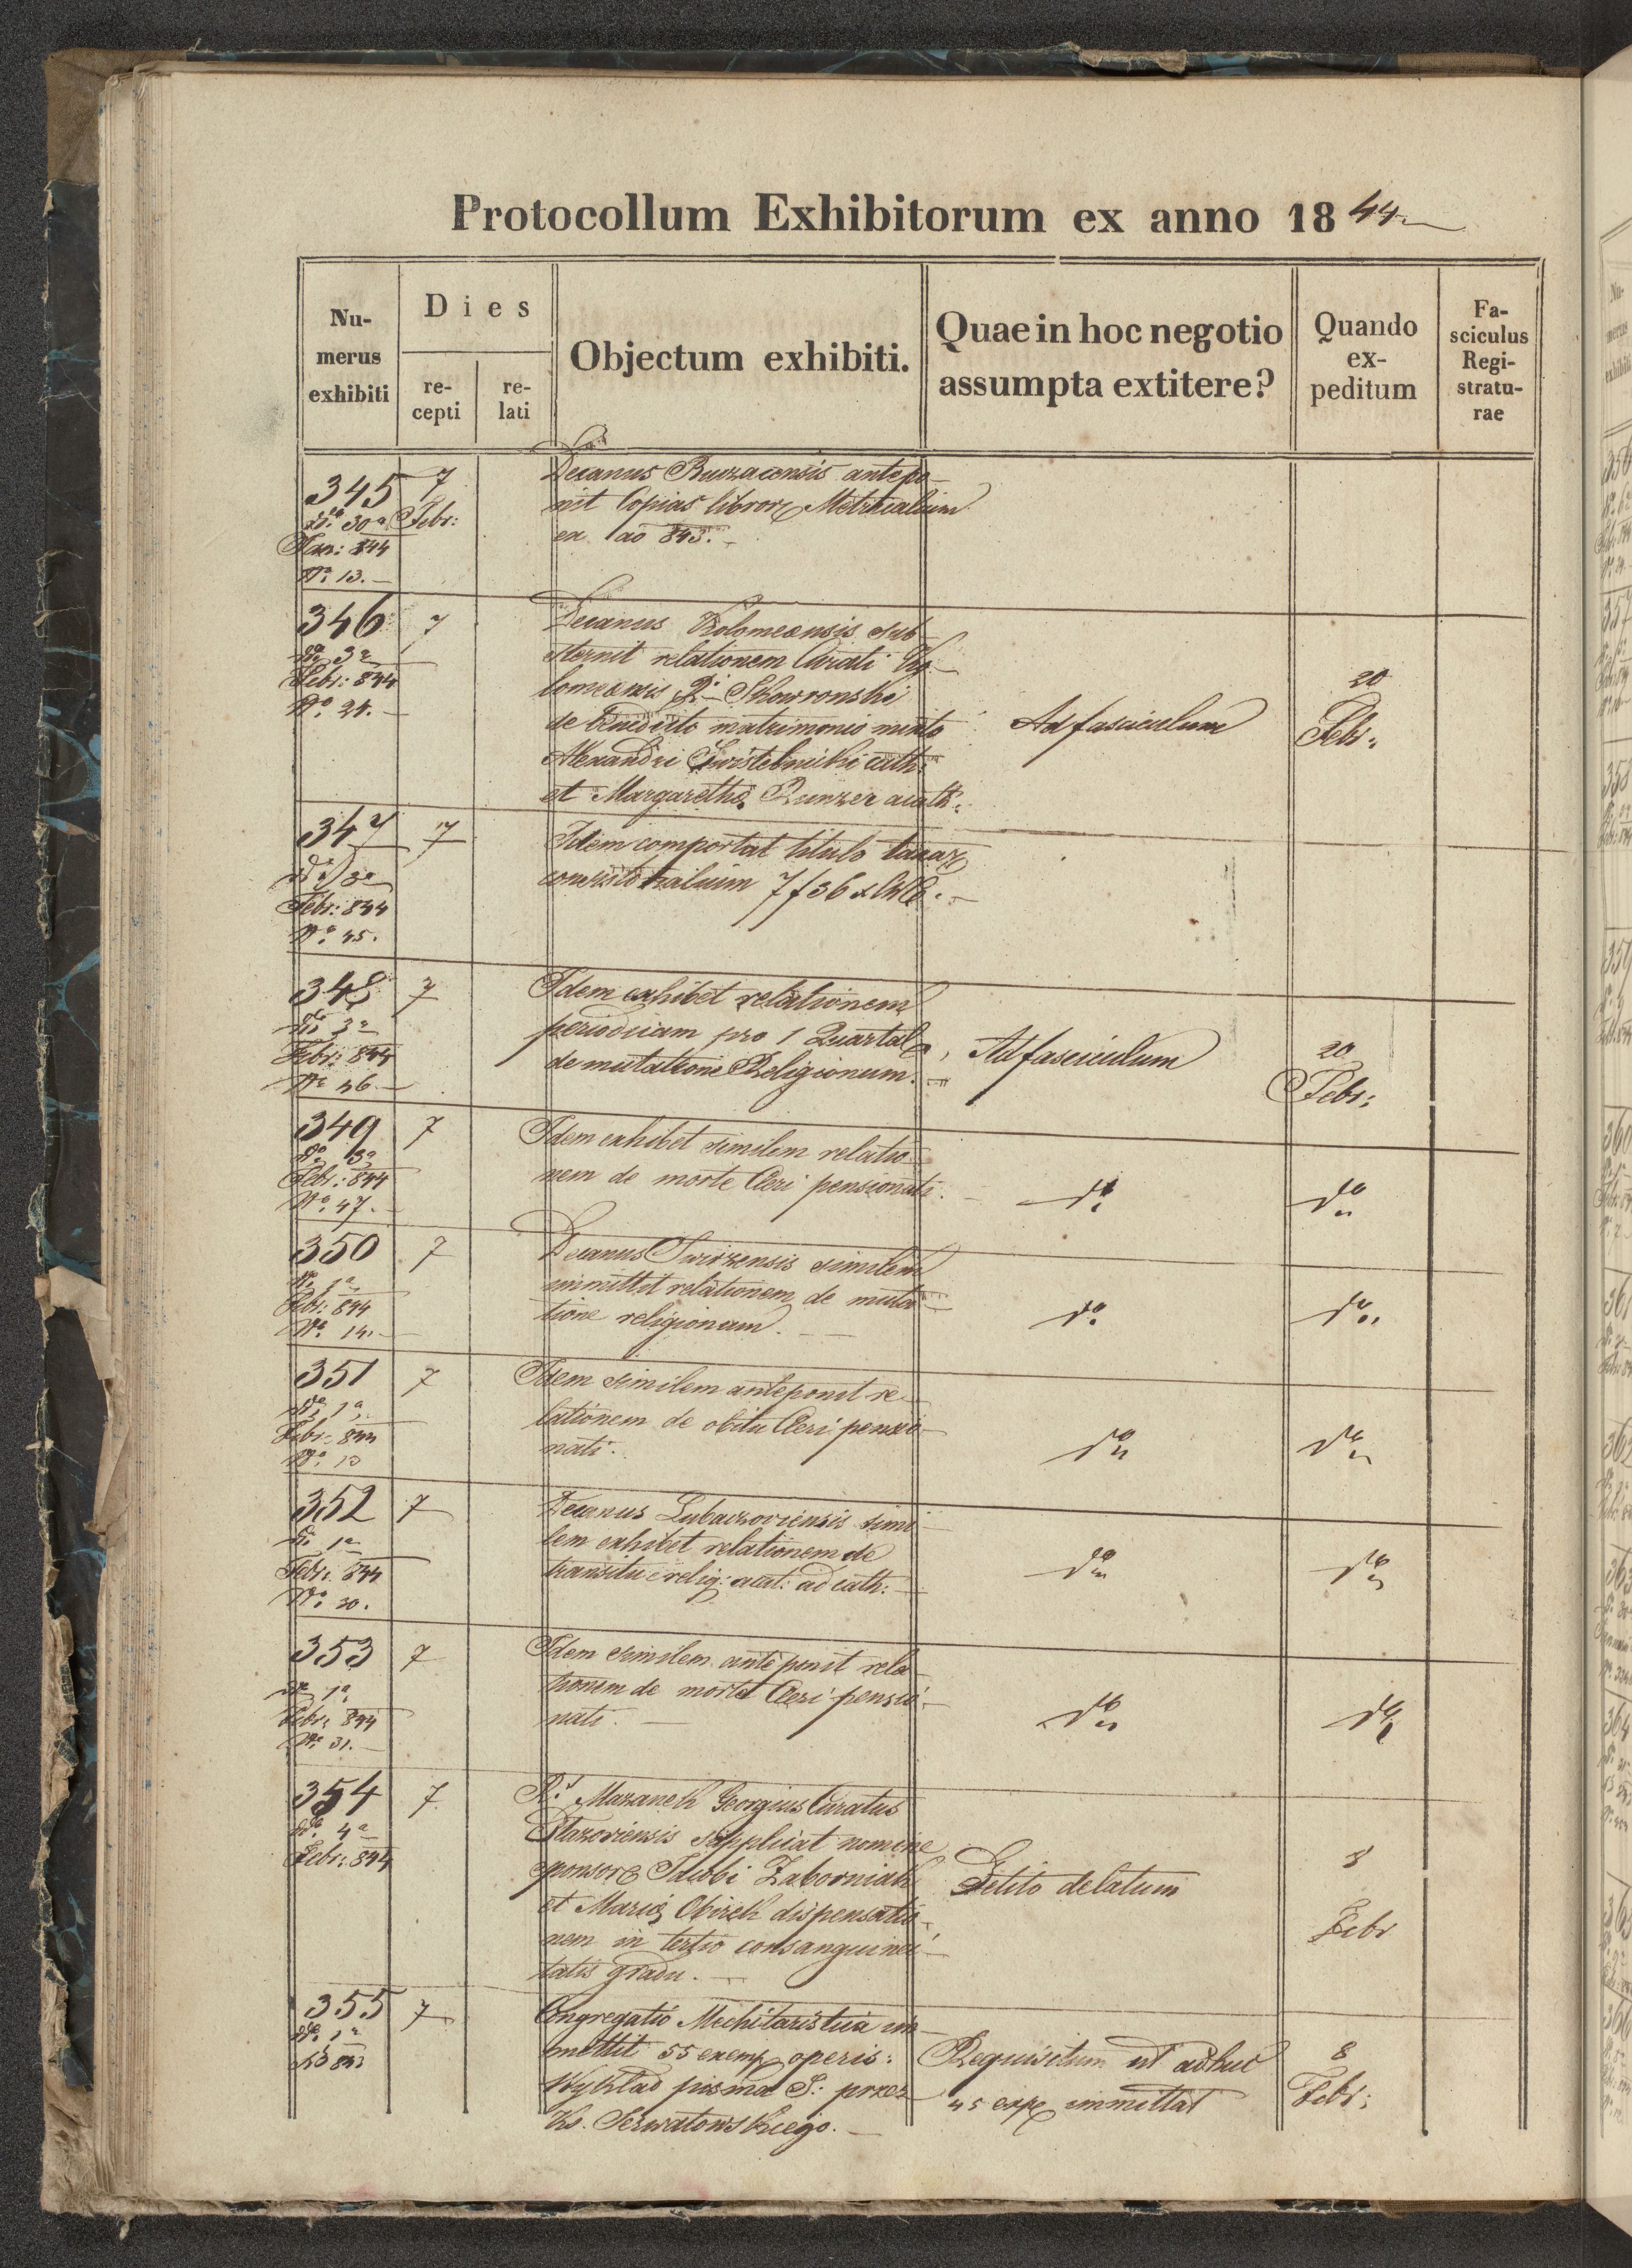 Protocollum Exhibitorum ex anno 1844
Nu-
merus
exhibiti
Dies
re-
cepti
re-
lati
Objectum exhibiti.
Quae in hoc negotio
assumpta extitere?
Quando
ex-
peditum
Fa-
sciculus
Regi-
stratu-
rae
345 7
dto 30a Febr:
Jan: 844
No 13.
Decanus Buczacensis antepo-
nit Copias libror Metricalium
ex ao 843.
346 7
dto 3a
Febr: 844
No 24.
Decanus Kolomeensis sub-
sternit relationem Curati Ko-
lomeensis Skowronski
de benedicto matrimonio mixto
Alexandri cath:
et Margarethæ acath:
Ad fasciculum
20
Febr:
347 7
dto 3a
Febr: 844
No 45.
Idem comportat titulo taxar
consistorialium 7f 36x
348 7
dto 3a
Febr: 844
No 46
Idem exhibet relationem
periodicam pro 1 Quartal
de mutatione Religionum.
Ad fasciculum
20
Febr:
349 7
dto 3a
Febr: 844
No 47.
Idem exhibet similem relatio-
nem de morte Cleri pensionati.
dto
dto
350 7
dto 1a
Febr: 844
No 14.
Decanus Swirzensis similem
immittit relationem de muta-
tione religionum.
dto
dto
351 7
dto 1a
Febr: 844
No 13
Idem similem anteponit re-
lationem de obitu Cleri pensio-
nati.
dto
dto
352 7
dto 1a
Febr: 844
No 30.
Decanus Lubaczoviensis simi-
lem exhibet relationem de
transitu e relig: acat: ad cath:
dto
dto
353 7
dto 1a
Febr: 844
No 31.
Idem similem anteponit rela-
tionem de morte Cleri pensio-
nati.
dto
dto
354 7
dto 4a
Febr: 844
Rd Mazanek Georgius Curatus
Plazoviensis supplicat nomine
sponsor Jacobi Zaborniak
et Mariæ Obirek dispensatio-
nem in tertio consanguinei-
tatis gradu.
Petito delatum
8
Febr
355 7
dto 1a
Congregatio Mechitaristica im-
mittit 55 exemp operis:
Wykład pisma S: przez
Ks. Serwatowskiego.
Requisitum ut adhuc
45 exp immittat
8
Febr: